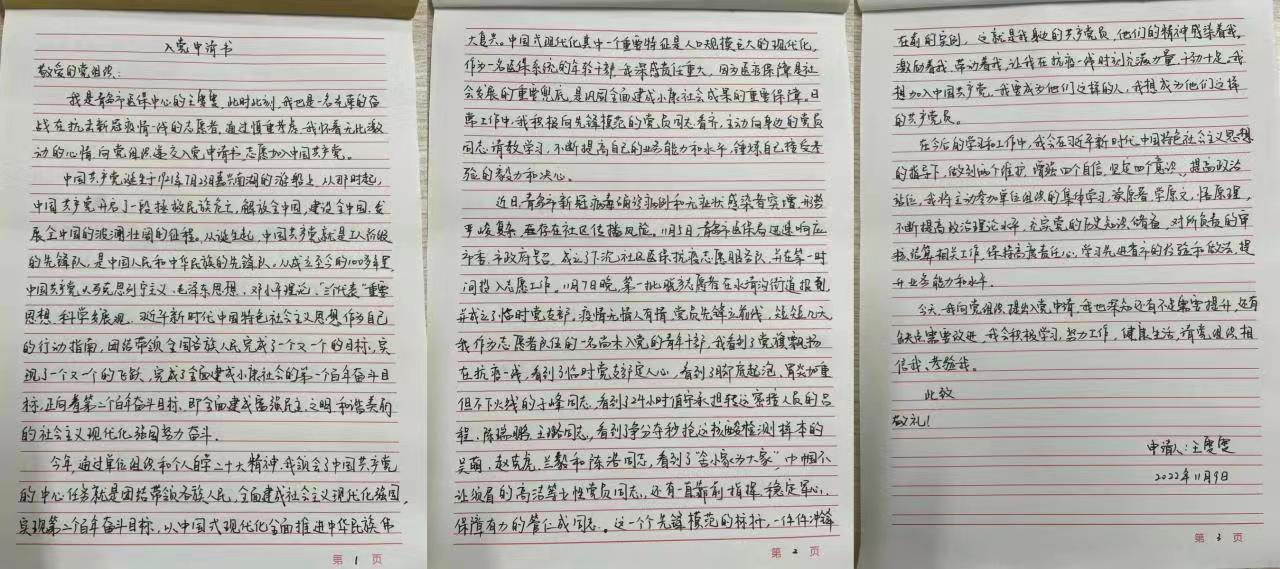 入党申请书
敬爱的党组织：
我是青岛市医保中心的王雯雯，此时此刻，我也是一名光荣的奋
战在抗击新冠疫情一线的志愿者，通过慎重考虑，我怀着无比激
动的心情，向党组织递交入党申请书，志愿加入中国共产党。
中国共产党诞生于1921年7月23日嘉兴南湖的游船上，从那时起，
中国共产党开启了一段拯救民族危亡，解放全中国，建设全中国，发
展全中国的波澜壮阔的征程。从诞生起，中国共产党就是工人阶级
的先锋队，是中国人民和中华民族的先锋队，从成立至今的100多年里，
中国共产党以马克思列宁主义、毛泽东思想、邓小平理论、“三个代表”重要
思想、科学发展观、习近平新时代中国特色社会主义思想作为自己
的行动指南，团结带领全国各族人民完成了一个又一个的目标，实
现了一个又一个的飞跃，完成了全面建成小康社会的第一个百年奋斗目
标，正向着第二个百年奋斗目标，即全面建成富强民主文明和谐美丽
的社会主义现代化强国努力奋斗。
今年，通过单位组织和个人自学二十大精神，我领会了中国共产党
的中心任务就是团结带领各族人民，全面建成社会主义现代化强国，
实现第二个百年奋斗目标，以中国式现代化全面推进中华民族伟
第 1 页
大复兴。中国式现代化其中一个重要特征是人口规模巨大的现代化，
作为一名医保系统的年轻干部，我深感责任重大，因为医疗保障是社
会发展的重要兜底，是巩固全面建成小康社会成果的重要保障。日
常工作中，我积极向先锋模范的党员同志看齐，主动向身边的党员
同志请教学习，不断提高自己的业务能力和水平，锤炼自己接受考
验的毅力和决心。
近日，青岛市新冠病毒确诊病例和无症状感染者突增，形势
严峻复杂，且存在社区传播风险。11月5日，青岛市医保局迅速响应
市委、市政府号召，成立下沉社区医保抗疫志愿服务队，并在第一时
间投入志愿工作。11月7日晚，第一批40多名志愿者在水清沟街道报到，
并成立了临时党支部，疫情无情人有情，党员先锋立前线，短短几天，
我作为志愿者队伍的一名尚未入党的青年干部，我看到了党旗飘扬
在抗疫一线，看到了临时党支部定人心，看到了脚底起泡、胃炎加重
但不下火线的于峰同志，看到了24小时值守承担转运密接人员的吕
程、陈瑞鹏、王璐同志，看到了争分夺秒抢送核酸检测样本的
吴萌、赵荣虎、兰毅和陈浩同志，看到了“舍小家为大家”，巾帼不
让须眉的高洁等女性党员同志，还有一直靠前指挥、稳定军心、
保障有力的管仁成同志。这一个个先锋模范的标杆，一件件冲锋
第 2 页
在前的实例，这就是我身边的共产党员，他们的精神感染着我，
激励着我，带动着我，让我在抗疫一线时刻充满力量，干劲十足。我
想加入中国共产党，我要成为他们这样的人，我想成为他们这样
的共产党员。
在今后的学习和工作中，我会在习近平新时代中国特色社会主义思想
的指导下，做到两个维护，增强四个自信，坚定四个意识，提高政治
站位，我将主动参加单位组织的集体学习，读原著，学原文，悟原理，
不断提高政治理论水平，充实党的历史知识储备，对所负责的审
核结算相关工作，保持高度责任心，学习先进省市的经验和做法，提
升业务能力和水平。
今天，我向党组织提出入党申请，我也深知还有不足需要提升，还有
缺点需要改进，我会积极学习，努力工作，健康生活，请党组织相
信我，考验我。
此致
敬礼！
申请人：王雯雯
2022年11月9日
第 3 页